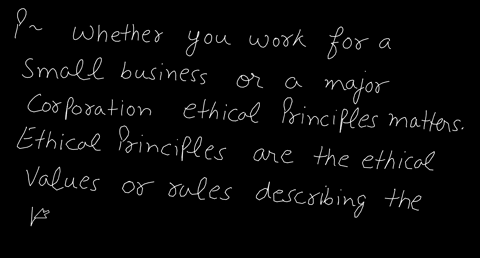 whether you work for a
Small business or a major
Corporation ethical Principles matters.
Ethical Principles are the ethical
Values or rules describing the